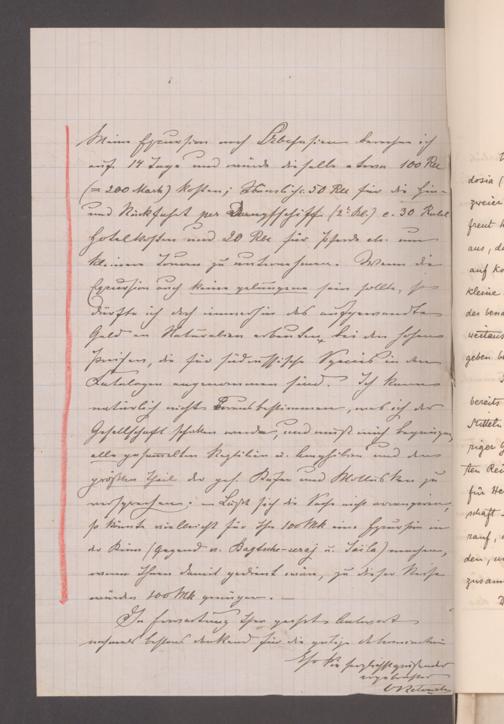 Meine Excursion nach Abchasien berechne ich
auf 14 Tage und würde dieselbe etwa 100 Rbl
(= 200 Mark) kosten; 50 Rbl für die Hin-
und Rückfahrt per Dampfschiff (2te Kl.) c. 30 Rubel
Hotelkosten und 20 Rbl für Pferde etc. um
kleinere Touren zu unternehmen. Wenn die
Excursion auch keine gelungene sein sollte, so
dürfte ich doch immerhin das aufgewandte
Geld an Naturalien erbeuten, bei den hohen
Preisen, die für südrussische Species in den
Catalogen angenommen sind. Ich kann
natürlich nichts bestimmen, was ich der
Gesellschaft schaffen werde, und muß mich begnügen
alle gesammelten Reptilien u. Amphibien und den
größten Theil der ges. Käfer und Mollusken zu
versprechen. Läßt sich die Sache nicht arrangieren,
so könnte vielleicht für Ihre 100 Mk eine Excursion in
der Krim (Gegend v. Bagtsche-seraj u. Saila) machen,
wenn Ihnen damit gedient wäre, zu dieser Reise
würden 100 Mk genügen. —
In Erwartung Ihrer geehrten Antwort
nochmals bestens dankend für die gütige
Ihr Sie hochachtungsvoll grüßender
ergebenster
O Retowski
dosia (
zweier
freut
aus, d
auf
kleine
des
weitaus
geben
bereits
Mitteln
riger
ten Rei
für He
schaft
rauf,
den, u
zusam